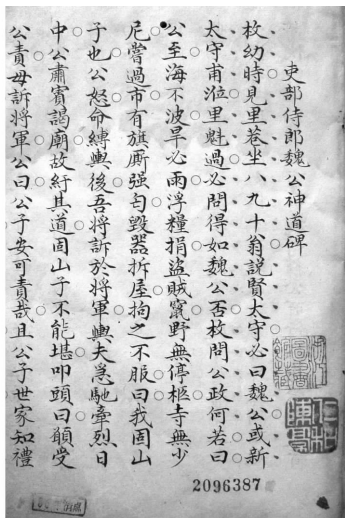 吏部侍郎魏公神道碑
枚幼時見里巷坐八九十翁說賢太守必曰魏公或新
太守甫涖里魁過必問得如魏公否枚問公政何若曰
公至海不波旱必雨浮糧捐盜賊竄野無停柩寺無少
尼嘗過市有旗廝强匄毀器折屋拘之不服曰我固山
子也公怒命縛輿後吾將訴於將軍輿夫急馳牽烈日
中公肅賓謁廟故紆其道固山子不能堪叩頭曰願受
公責毋訴將軍公曰公子安可責哉且公子世家知禮
2096387